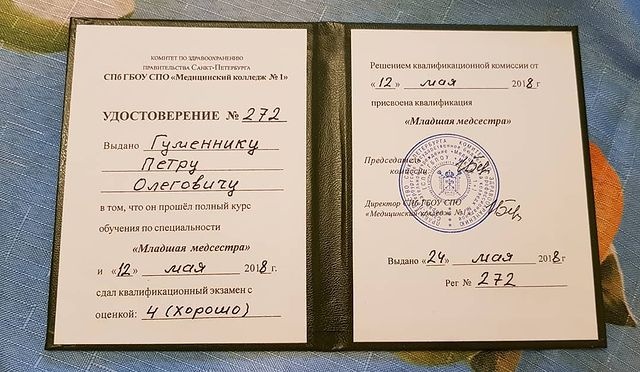 КОМИТЕТ ПО ЗДРАВООХРАНЕНИЮ
ПРАВИТЕЛЬСТВА САНКТ-ПЕТЕРБУРГА
СПб ГБОУ СПО «Медицинский колледж № 1»
УДОСТОВЕРЕНИЕ № 272
Выдано Гуменнику
Петру
Олеговичу
в том, что он прошёл полный курс
обучения по специальности
«Младшая медсестра»
и «12» мая 2018 г.
сдал квалификационный экзамен с
оценкой: 4 (хорошо)
Решением квалификационной комиссии от
«12» мая 2018 г
присвоена квалификация
«Младшая медсестра»
Председатель
комиссии
Директор СПб ГБОУ СПО
«Медицинский колледж №1»
Выдано «24» мая 2018 г
Рег № 272